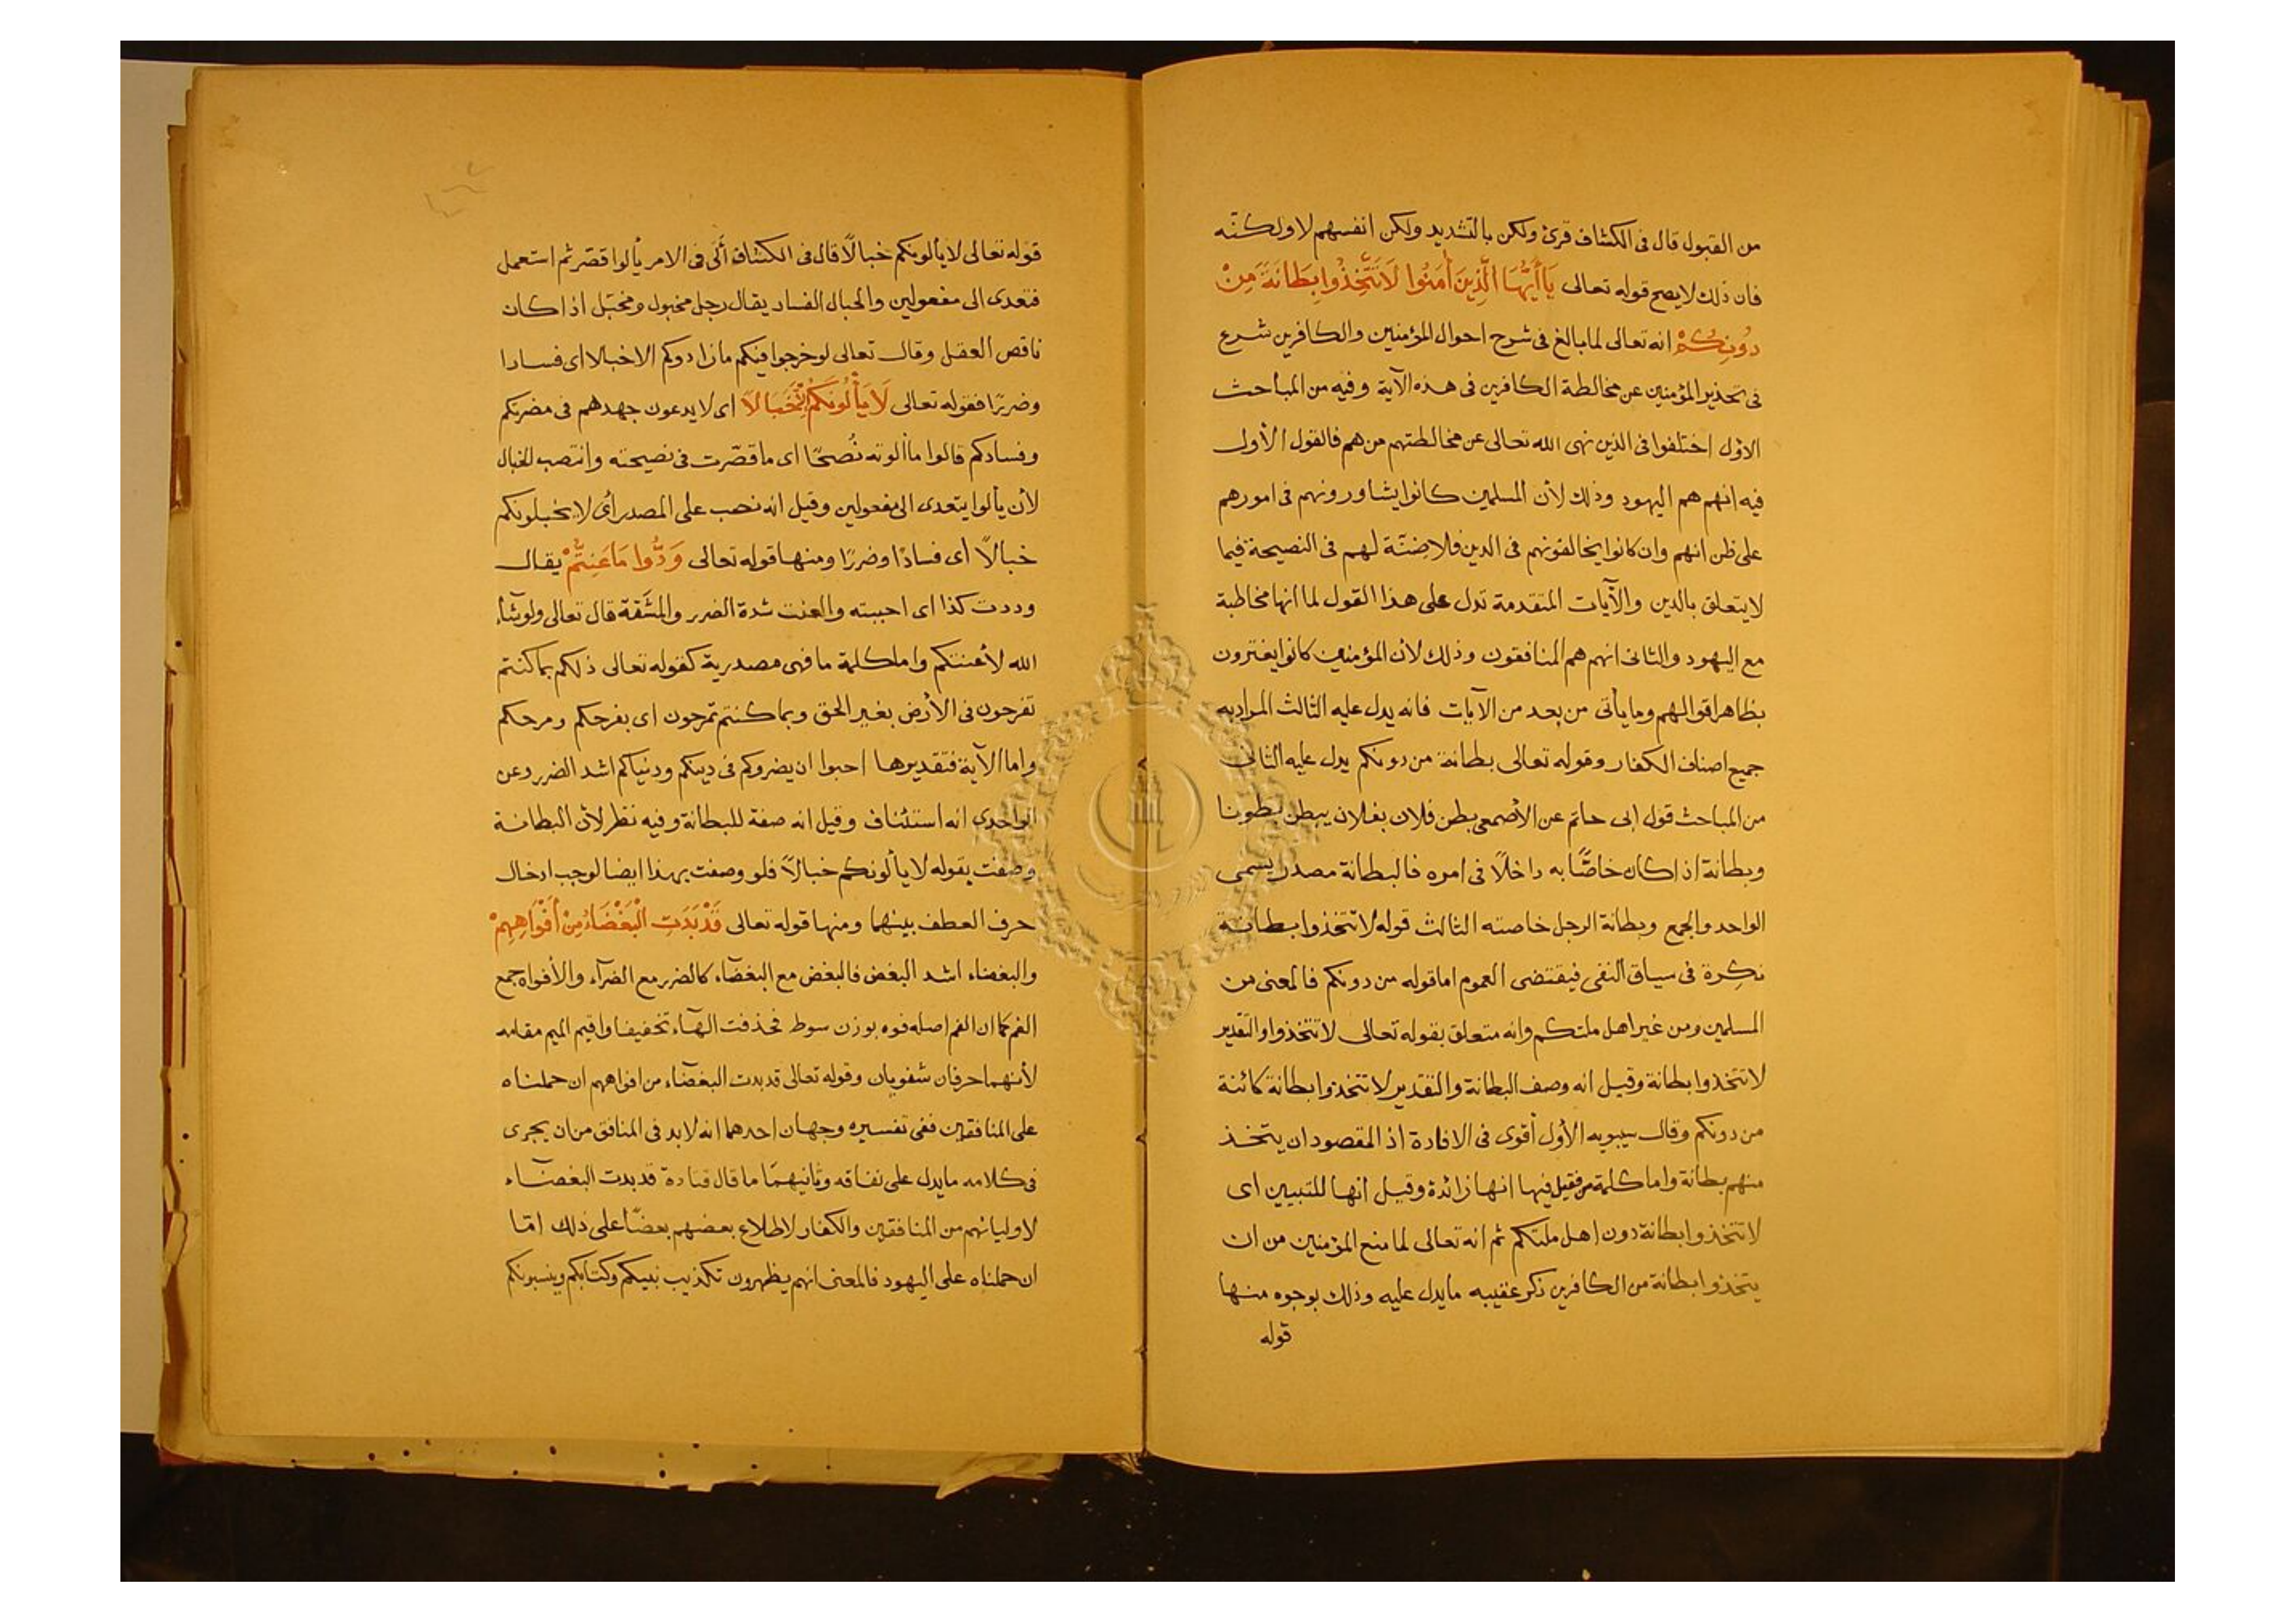 من القبول قال فى الكشاف قرئ ولكن بالتشديد ولكن انفسهم لا ولكنّه
فان ذلك لا يصح قوله تعالى يَاأَيُّهَا الَّذِينَ أٰمَنُوا لَاتَتَّخِذُوا بِطَانَةً مِنْ
دُونِكُمْ انه تعالى لما بالغ فى شرح احوال المؤمنين والكافرين شرع
فى تحذير المؤمنين عن مخالطة الكافرين فى هذه الآية وفيه من المباحث
الاوّل اختلفوا فى الذين نهى الله تعالى عن مخالطتهم من هم فالقول الأول
فيه انهم هم اليهود وذلك لأن المسلمين كانوا يشاورونهم فى امورهم
على ظن انهم وان كانوا يخالفونهم فى الدين فلا ضنّة لهم فى النصيحة فيما
لا يتعلق بالدين والآيات المتقدمة تدل على هذا القول لما انها مخاطبة
مع اليهود والثانى انهم هم المنافقون وذلك لان المؤمنين كانوا يغترون
بظاهر اقوالهم وما يأتى من بعد من الآيات فانه يدل عليه الثالث المراد به
جميع اصناف الكفار وقوله تعالى بطانة من دونكم يدل عليه الثانى
من المباحث قول ابى حاتم عن الأصمعى بطن فلان بفلان يبطن بطونا
وبطانة اذا كان خاصًّا به داخلاً فى امره فالبطانة مصدر يسمى
الواحد والجمع وبطانة الرجل خاصته الثالث قوله لا تتخذوا بطانة
نكِرة فى سياق النفى فيقتضى العموم اما قوله من دونكم فالمعنى من
المسلمين ومن غير اهل ملتكم وانه متعلق بقوله تعالى لا تتخذوا والتقدير
لا تتخذوا بطانة وقيل انه وصف البطانة والتقدير لا تتخذوا بطانة كائنة
من دونكم وقال سيبويه الأول أقوى فى الافادة اذ المقصود ان يتخذ
منهم بطانة واما كلمة من فقيل فيها انها زائدة وقيل انها للتبيين اى
لا تتخذوا بطانة دون اهل ملتكم ثم انه تعالى لما منع المؤمنين من ان
يتخذوا بطانة من الكافرين ذكر عقيبه ما يدل عليه وذلك بوجوه منها
قوله
قوله تعالى لا يألونكم خبالاً قال فى الكشاف أَلَى فى الامر يألوا قصّر ثم استعمل
فتعدى الى مفعولين والخبال الفساد يقال رجل مخبول ومخبّل اذا كان
ناقص العقل وقال تعالى لو خرجوا فيكم ما زادوكم الا خبالا اى فسادا
وضررًا فقوله تعالى لَا يَأْلُونَكُمْ خَبَالًا اى لا يدعون جهدهم فى مضرتكم
وفسادكم قالوا ما ألوته نُصحًا اى ما قصّرت فى نصيحته وانتصب الخبال
لأن يألوا يتعدى الى مفعولين وقيل انه نصب على المصدر أى لا يخبلونكم
خبالاً اى فسادًا وضررًا ومنها قوله تعالى وَدُّوا مَاعَنِتُّمْ يقال
وددت كذا اى احببته والعنت شدة الضرر والمشقة قال تعالى ولو شآء
الله لأعنتكم واما كلمة ما فهى مصدرية كقوله تعالى ذلكم بما كنتم
تفرحون فى الأرض بغير الحق وبما كنتم تمرحون اى بفرحكم ومرحكم
واما الآية فتقديرها احبوا ان يضروكم فى دينكم ودنياكم اشد الضرر وعن
الواحدى انه استئناف وقيل انه صفة للبطانة وفيه نظر لأن البطانة
وصفت بقوله لا يألونكم خبالاً فلو وصفت بهذا ايضا لوجب ادخال
حرف العطف بينهما ومنها قوله تعالى قَدْ بَدَتِ الْبَغْضَاءُ مِنْ أَفْوَاهِهِمْ
والبغضاء اشد البغض فالبغض مع البغضآء كالضرر مع الضرآء والأفواه جمع
الفم كما ان الفم اصله فوه بوزن سوط فحذفت الهآء تخفيفا واقيم الميم مقامه
لأنهما حرفان شفويان وقوله تعالى قد بدت البغضآء من افواههم ان حملناه
على المنافقين ففى تفسيره وجهان احدهما انه لا بد فى المنافق من ان يجرى
فى كلامه ما يدل على نفاقه وثانيهما ما قال قتادة قد بدت البغضآء
لاوليائهم من المنافقين والكفار لاطلاع بعضهم بعضًا على ذلك امّا
ان حملناه على اليهود فالمعنى انهم يظهرون تكذيب نبيكم وكتابكم وينسبونكم